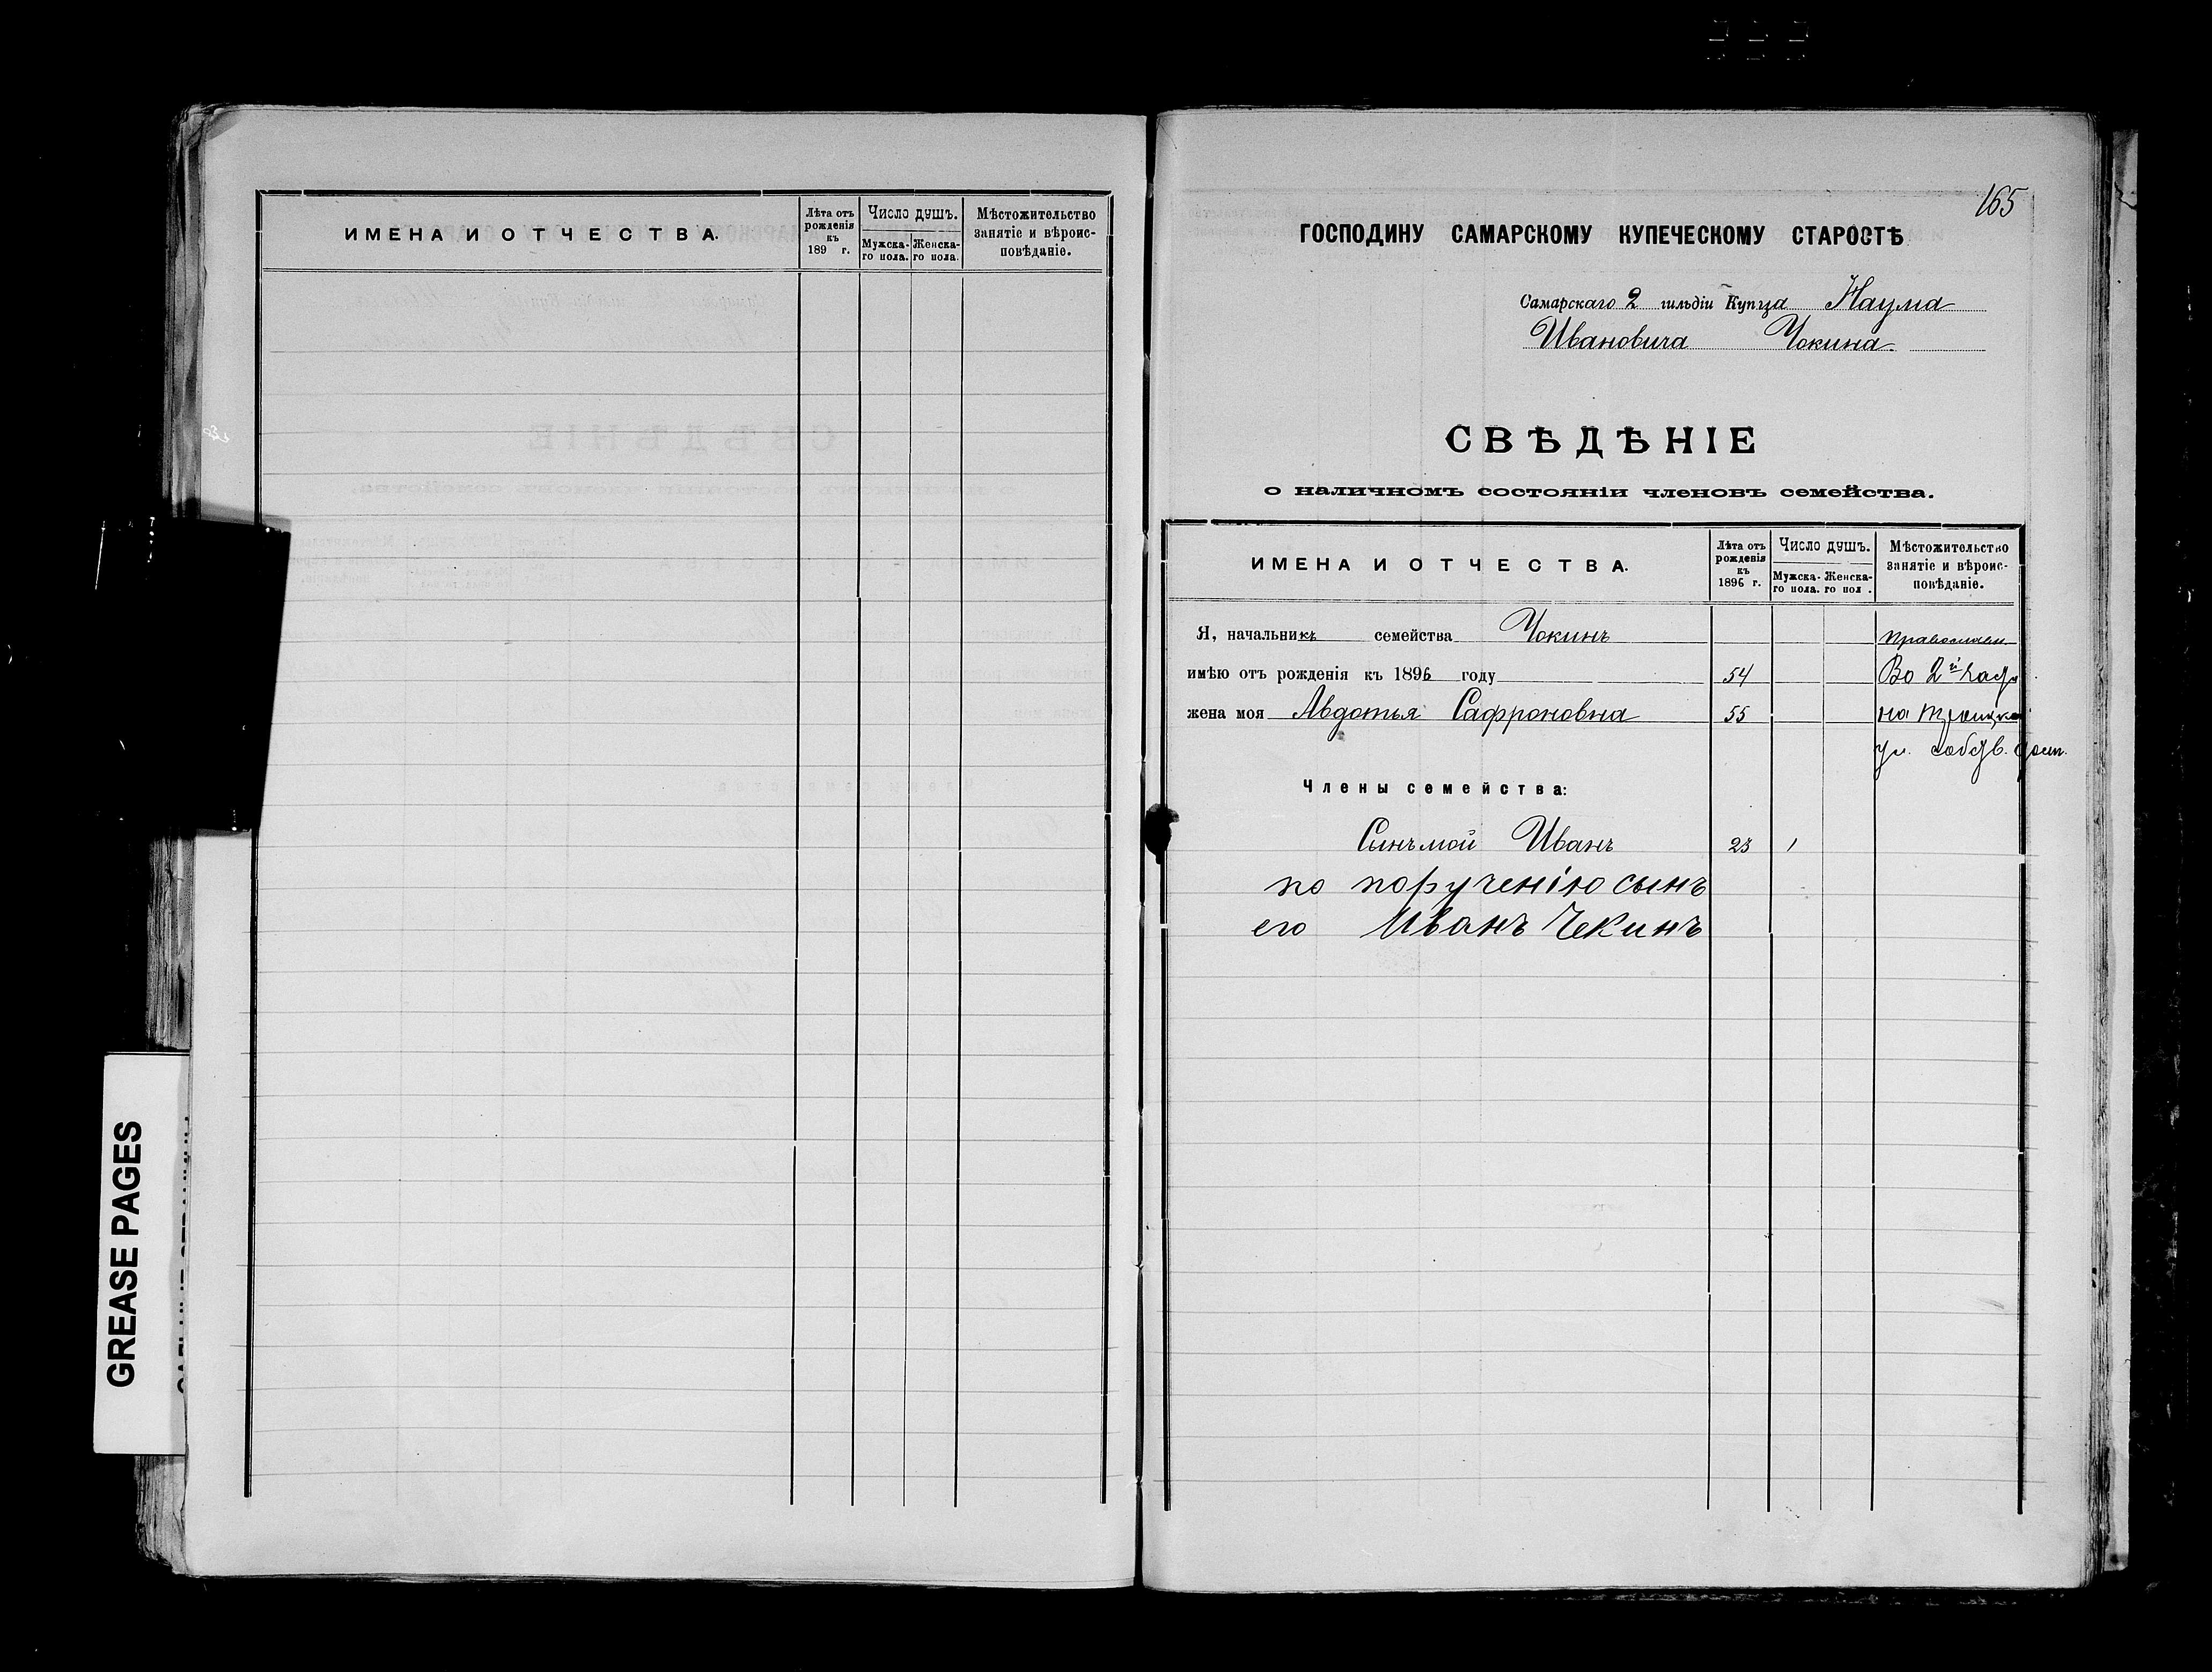 ИМЕНА И ОТЧЕСТВА.
Лѣта отъ рожденія къ 189 г.
Число душъ.
Мужска-го пола.
Женска-го пола.
Мѣстожительство занятіе и вѣроис-повѣданіе.
GREASE PAGES
165
ГОСПОДИНУ САМАРСКОМУ КУПЕЧЕСКОМУ СТАРОСТѢ
Самарскаго 2 гильдіи Купца Наума
Ивановича Чокина
СВѢДѢНІЕ
о наличномъ состояніи членовъ семейства.
ИМЕНА И ОТЧЕСТВА.
Лѣта отъ рожденія къ 1896 г.
Число душъ.
Мужска-го пола.
Женска-го пол .
Мѣстожительство занятіе и вѣроис-повѣданіе.
Я, начальникъ семейства Чокинъ
имѣю отъ рожденія къ 1896 году 54 Во 2й
жена моя Авдотья Сафроновна 55 на
ул.
Члены семейства:
Сынъ мой Иванъ 23 1
по порученію сынъ
его Иванъ Чекинъ